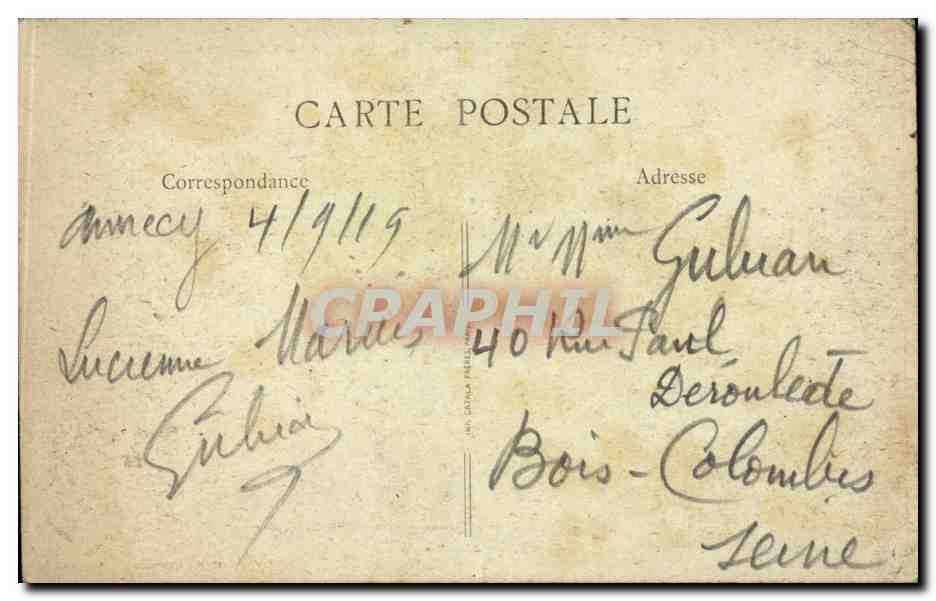 CARTE POSTALE
Correspondance
Adresse
Annecy 4/9/19
Lucienne Marius
Mr Mme
40 Rue Paul
Déroulède
Bois-Colombes
Seine
CRAPHIL
IMP. CATALA FRÈRES, PARIS